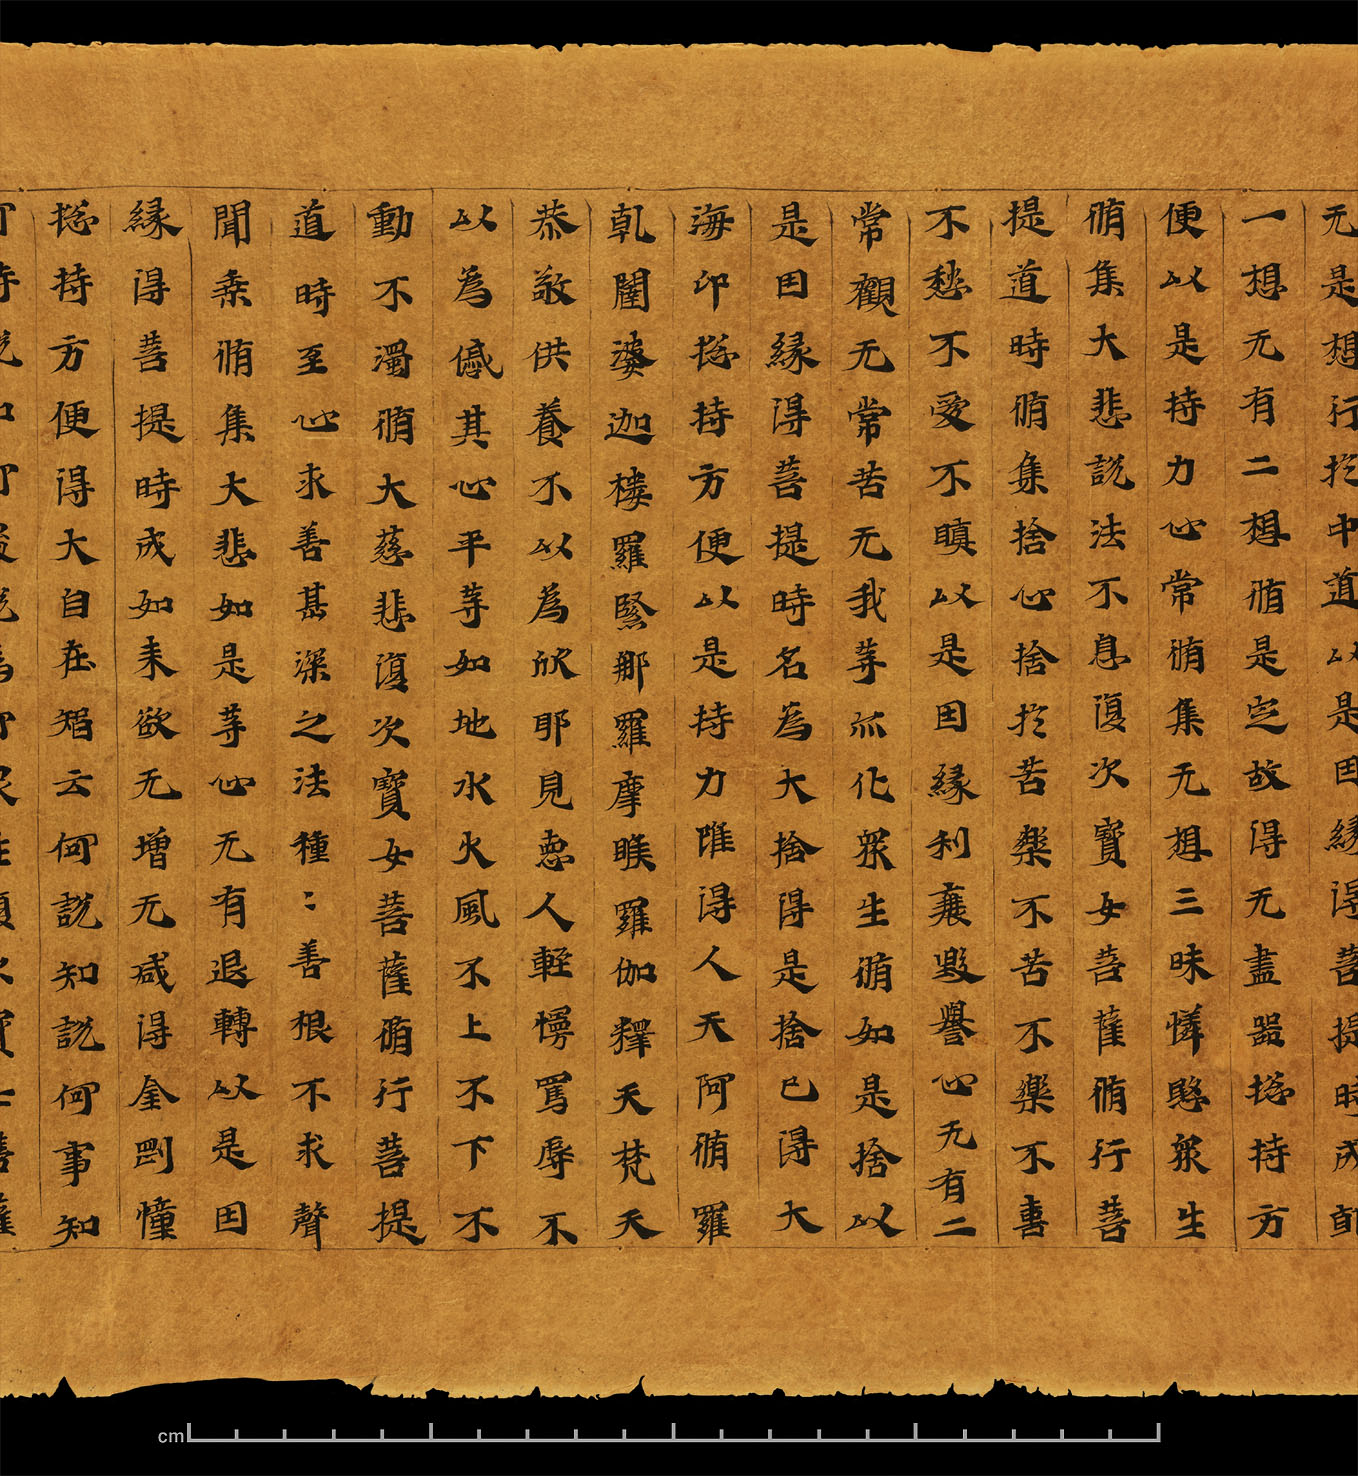 无是想行於中道以是因緣得菩提時成
一想无有二想脩是定故得无盡器捴持方
便以是持力心常脩集无想三昧憐愍眾生
脩集大悲說法不息復次寶女菩薩脩行菩
提道時脩集捨心捨於苦樂不苦不樂不喜
不愁不愛不瞋以是因緣利衰毀譽心无有二
常觀无常苦无我等示化眾生脩如是捨以
是因緣得菩提時名為大捨得是捨已得大
海印捴持方便以是持力唯得人天阿脩羅
乹闥婆迦樓羅緊那羅摩睺羅伽釋天梵天
恭敬供養不以為欣耶見惡人輕慢罵辱不
以為慼其心平等如地水火風不上不下不
動不濁脩大慈悲復次寶女菩薩脩行菩提
道時至心求善甚深之法種〻善根不求聲
聞乘脩集大悲如是等心无有退轉以是因
緣得菩提時成如来欲无增无减得金剛幢
捴持方便得大自在智云何說知說何事知